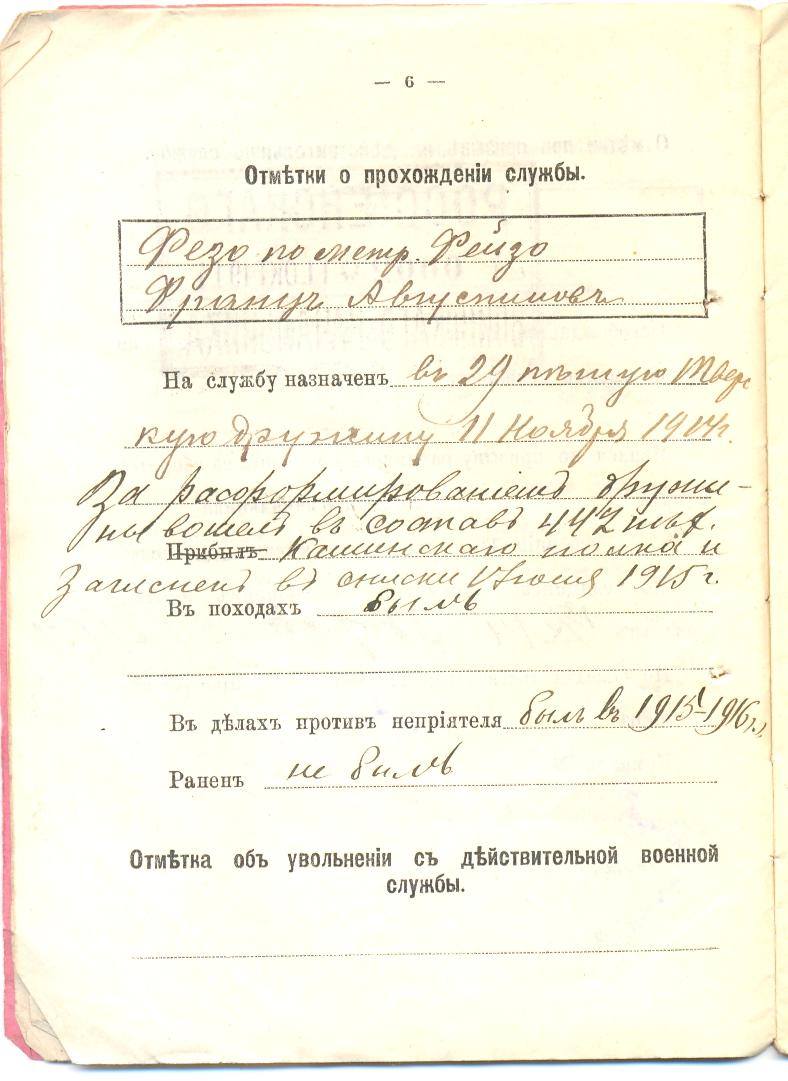 — 6 —
Отмѣтки о прохожденіи службы.
Фезо по метр. Фейзо
Францъ Августиновъ
На службу назначенъ въ 29 пѣшую Твер
кую дружину 11 Ноября 1914 г.
За расформированіемъ дружи-
ны вошелъ въ составъ 442 пѣх.
Прибылъ Кашинскаго полка и
Зачисленъ въ списки 1915 г.
Въ походахъ былъ
Въ дѣлахъ противъ непріятеля былъ въ 1915-1916 г.г.
Раненъ не былъ
Отмѣтка объ увольненіи съ дѣйствительной военной
службы.